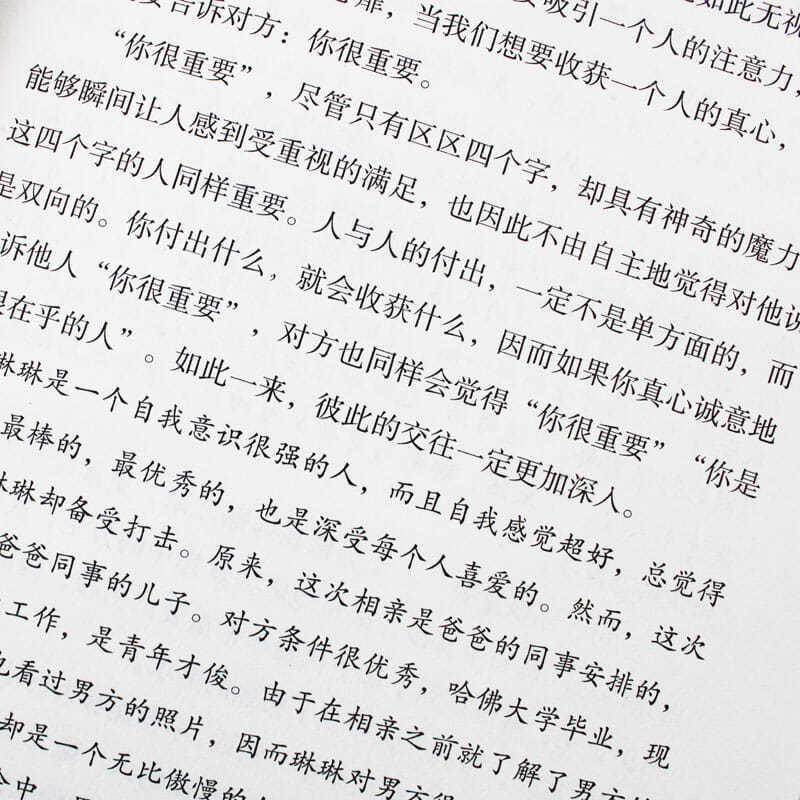 如此无视
吸引一个人的注意力，
告诉对方：你很重要。
，当我们想要收获一个人的真心，
“你很重要”，尽管只有区区四个字，却具有神奇的魔力
能够瞬间让人感到受重视的满足，也因此不由自主地觉得对他说
这四个字的人同样重要。人与人的付出，一定不是单方面的，而
是双向的。你付出什么，就会收获什么，因而如果你真心诚意地
诉他人“你很重要”，对方也同样会觉得“你很重要”“你是
在乎的人”。如此一来，彼此的交往一定更加深入。
琳琳是一个自我意识很强的人，而且自我感觉超好，总觉得
最棒的，最优秀的，也是深受每个人喜爱的。然而，这次
琳琳却备受打击。原来，这次相亲是爸爸的同事安排的，
爸爸同事的儿子。对方条件很优秀，哈佛大学毕业，现
工作，是青年才俊。由于在相亲之前就了解了男方
看过男方的照片，因而琳琳对男方很
却是一个无比傲慢的